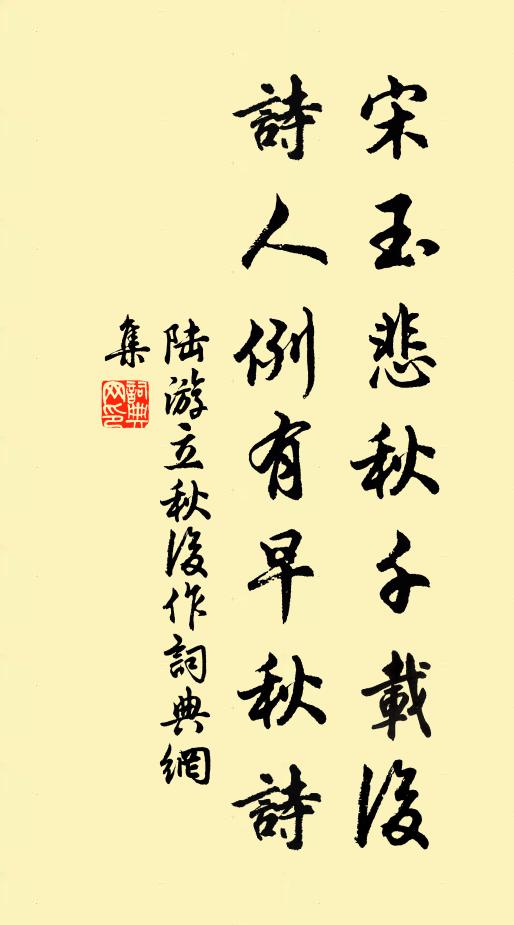 宋玉悲秋千載後
詩人例有早秋詩
陸游立秋後作詞典網
集
詞典
网印